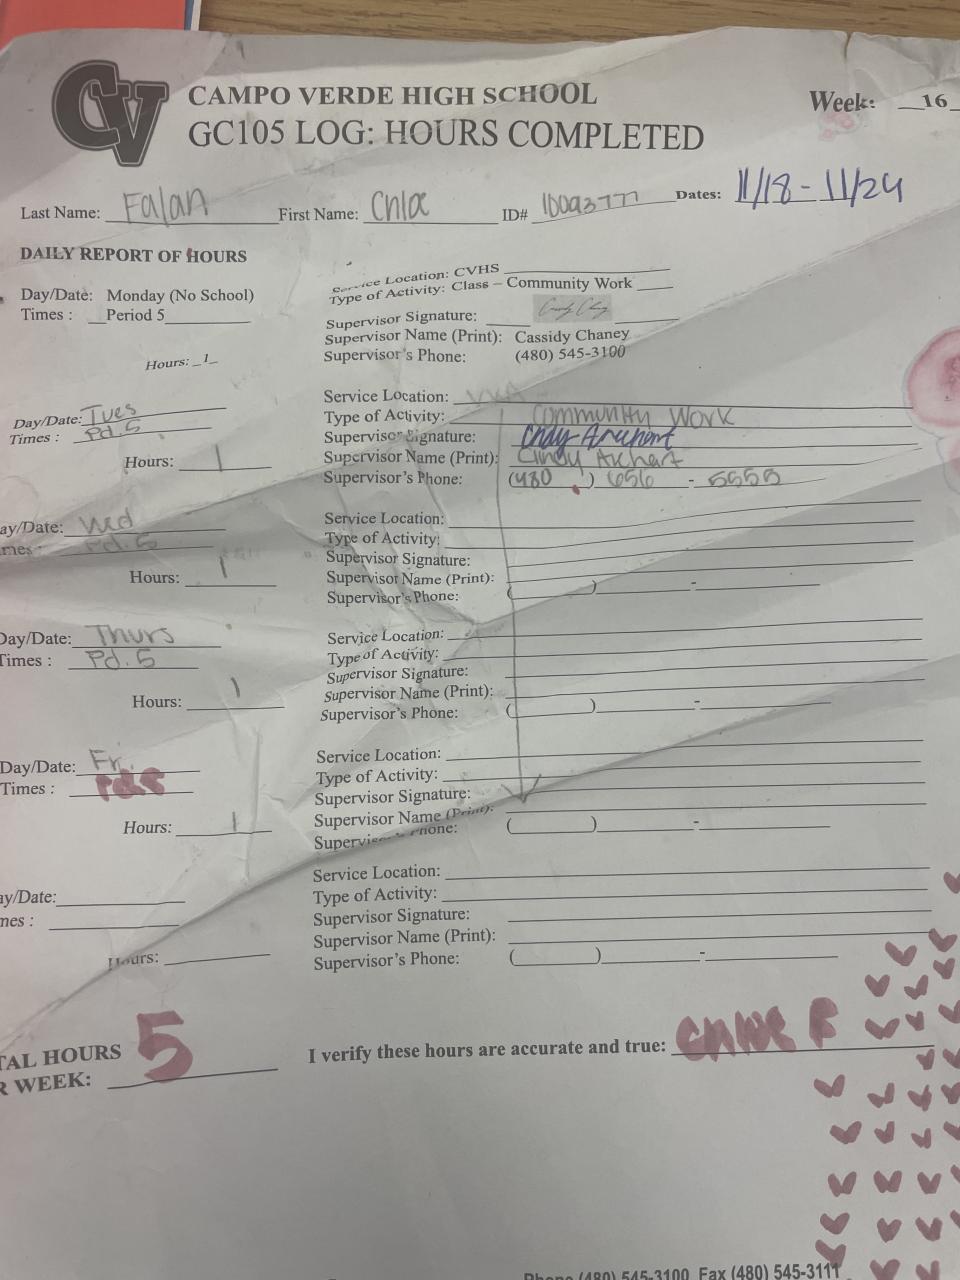 CV
CAMPO VERDE HIGH SCHOOL
GC105 LOG: HOURS COMPLETED
Week: 16
Last Name: Falan First Name: Chloe ID# Dates: 11/18 - 11/24
DAILY REPORT OF HOURS
Day/Date: Monday (No School)
Times : Period 5
Hours: 1
Service Location: CVHS
Type of Activity: Class – Community Work
Supervisor Signature:
Supervisor Name (Print): Cassidy Chaney
Supervisor's Phone: (480) 545-3100
Day/Date: Tues
Times : Pd. 5
Hours: 1
Service Location:
Type of Activity: Community Work
Supervisor Signature:
Supervisor Name (Print): Cindy
Supervisor's Phone: (480) 656 - 5555
ay/Date: Wed
mes : Pd. 5
Hours: 1
Service Location:
Type of Activity:
Supervisor Signature:
Supervisor Name (Print):
Supervisor's Phone: ( ) -
Day/Date: Thurs
Times : Pd. 5
Hours: 1
Service Location:
Type of Activity:
Supervisor Signature:
Supervisor Name (Print):
Supervisor's Phone: ( ) -
Day/Date: Fri.
Times : Pd 5
Hours: 1
Service Location:
Type of Activity:
Supervisor Signature:
Supervisor Name (Print):
Phone: ( ) -
ay/Date:
mes :
Hours:
Service Location:
Type of Activity:
Supervisor Signature:
Supervisor Name (Print):
Supervisor's Phone: ( ) -
TAL HOURS
R WEEK: 5
I verify these hours are accurate and true: Chloe F
Phone (480) 545-3100 Fax (480) 545-3111